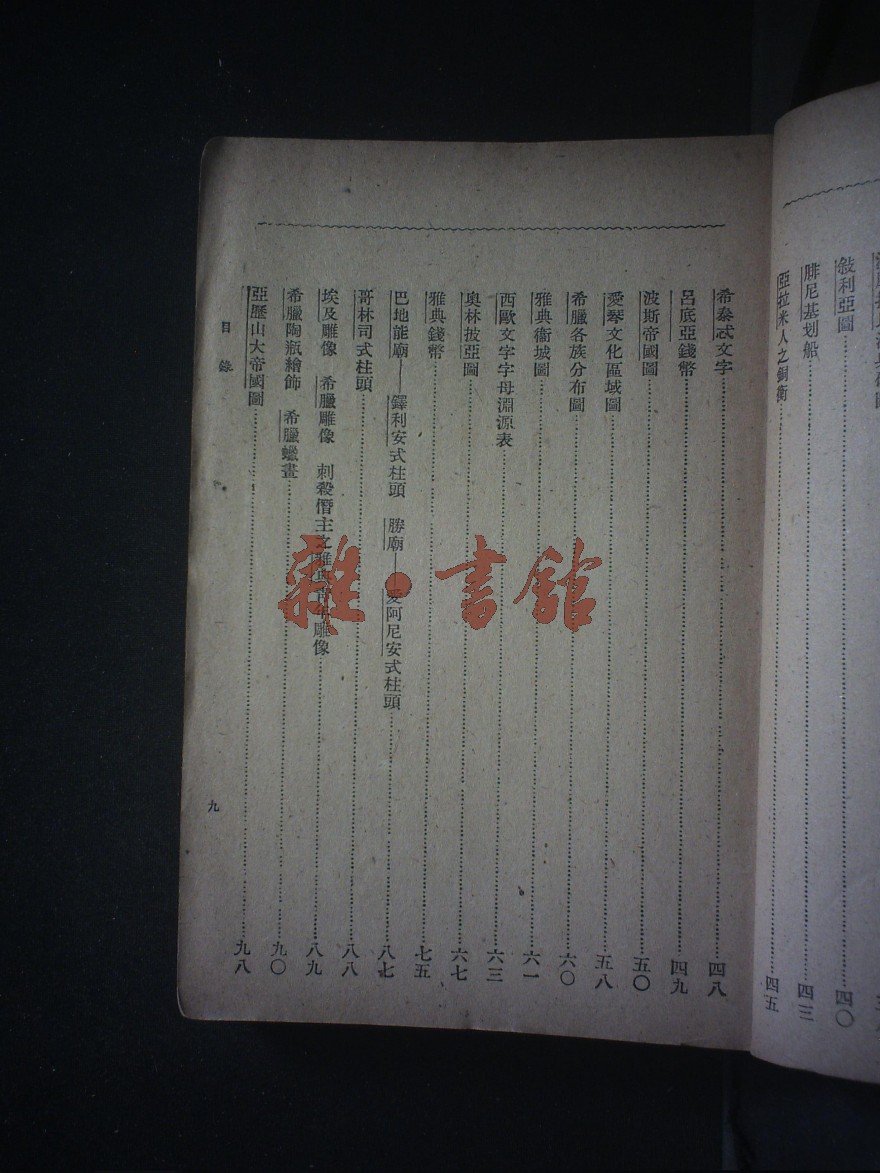 敍利亞圖……四〇
腓尼基划船……四三
亞拉米人之銅衡……四五
希泰忒文字……四八
呂底亞錢幣……四九
波斯帝國圖……五〇
愛琴文化區域圖……五八
希臘各族分布圖……六〇
雅典衞城圖……六一
西歐文字字母淵源表……六三
奧林披亞圖……六七
雅典錢幣……七五
巴地能廟——鐸利安式柱頭 勝廟——愛阿尼安式柱頭……八七
哥林司式柱頭……八八
埃及雕像 希臘雕像 刺殺僭主之雅典青年雕像……八九
希臘陶瓶繪飾 希臘蠟畫……九〇
亞歷山大帝國圖……九八
目錄
九
雜·書館